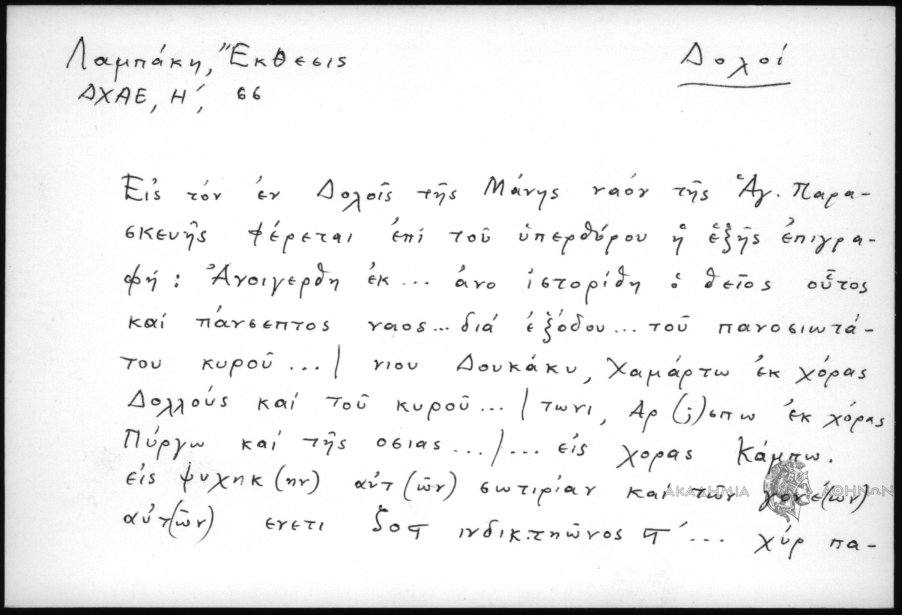 Λαμπάκη, Ἔκθεσις
Δολοί
ΔΧΑΕ, Η΄, 66
Εἰς τόν ἐν Δολοῖς τῆς Μάνης ναόν τῆς Ἁγ. Παρα-
σκευῆς φέρεται ἐπί τοῦ ὑπερθύρου ἡ ἑξῆς ἐπιγρα-
φή: Ἀνοιγερθη ἐκ... ἀνο ἱστορίθη ὁ θεῖος οὗτος
καί πάνσεπτος ναος... διά ἐξόδου... τοῦ πανοσιωτά-
του κυροῦ ... / νιου Δουκάκυ, Χαμάρτω ἐκ χόρας
Δολλούς καί τοῦ κυροῦ ... / τωνι, Αρ (;) σπω ἐκ χόρας
Πύργω καί τῆς οσιας .../... εἰς χορας Κάμπω.
εἰς ψυχηκ(ην) αὐτ(ῶν) σωτιρίαν καί τῶν γονέ(ων)
ΑΚΑΔΗΜΙΑ ΑΘΗΝΩΝ
αὐτ(ῶν) ενετι ινδικτηῶνος ... χύρ πα-